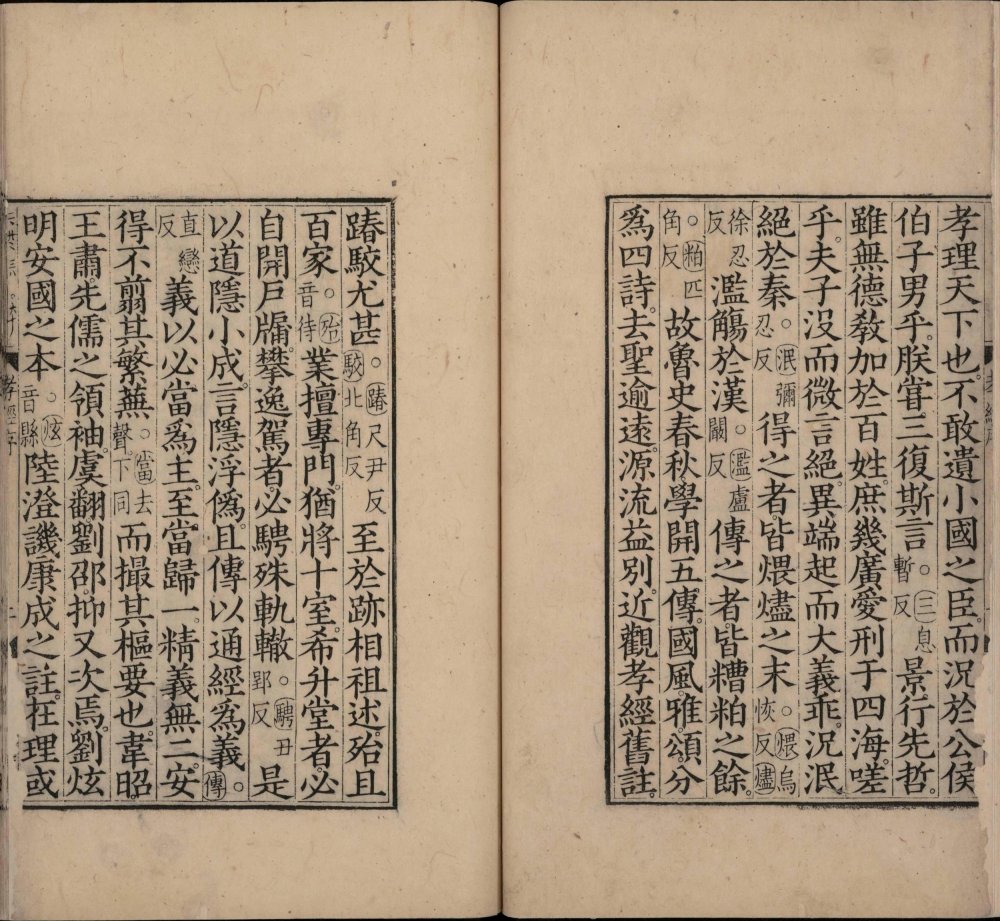 孝理天下也。不敢遺小國之臣。而況於公侯
伯子男乎。朕嘗三復斯言。○三息暫反景行先哲。
雖無德敎加於百姓。庶幾廣愛刑于四海。嗟
乎。夫子沒而微言絕。異端起而大義乖。況泯
絕於秦。○泯彌忍反得之者。皆煨燼之末。○煨烏恢反燼
徐忍反濫觴於漢。○濫盧闞反傳之者。皆糟粕之餘。
○粕匹角反故魯史春秋。學開五傳。國風雅頌。分
爲四詩。去聖逾遠。源流益別。近觀孝經舊註。
踳駁尤甚。○踳尺尹反駁北角反至於跡相祖述。殆且
百家。○殆音待業擅專門。猶將十室。希升堂者。必
自開戶牖。攀逸駕者。必騁殊軌轍。○騁丑郢反是
以道隱小成。言隱浮僞。且傳以通經爲義。○傳
直戀反義以必當爲主。至當歸一。精義無二。安
得不翦其繁蕪。○當去聲下同而撮其樞要也。韋昭。
王肅。先儒之領袖。虞翻。劉邵。抑又次焉。劉炫
明安國之本○炫音縣陸澄譏康成之註。在理或
孝經序
二